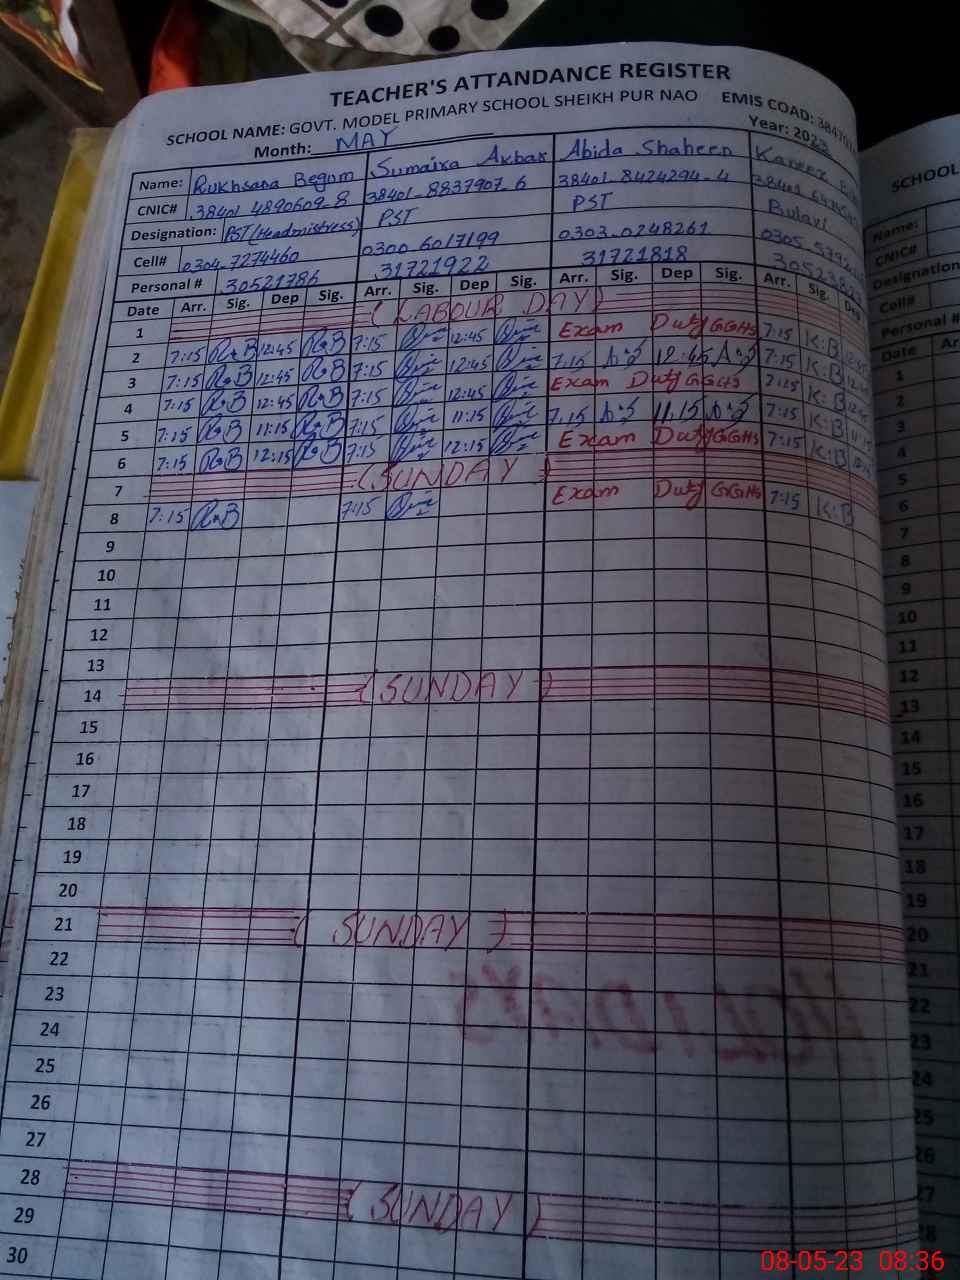 TEACHER'S ATTANDANCE REGISTER
SCHOOL NAME: GOVT. MODEL PRIMARY SCHOOL SHEIKH PUR NAO EMIS COAD:
Month: MAY Year: 2023
Name: Rukhsana Begum Sumaira Akbar Abida Shaheen
CNIC# 38401-4890609-8 38401-8837907-6 38401-8424294-4
Designation: PST(Headmistress) PST PST
Cell# 0304-7274460 0300-6017199 0303-0248261
Personal # 30521786 31721922 31721818
Date Arr. Sig. Dep Sig. Arr. Sig. Dep Sig. Arr. Sig. Dep Sig. Arr. Sig. Dep
1 (LABOUR DAY)
2 7:15 R.B 12:45 R.B 7:15 12:45 Exam Duty GGHS 7:15 K:B
3 7:15 R.B 12:45 R.B 7:15 12:45 7.15 A.S 12:45 A.S 7:15 K:B
4 7:15 R.B 12:45 R.B 7:15 12:45 Exam Duty GGHS 7:15 K:B
5 7:15 R.B 11:15 R.B 7:15 11:15 7.15 A.S 11.15 A.S 7:15 K:B
6 7:15 R.B 12:15 R.B 7:15 12:15 Exam Duty GGHS 7:15 K:B
7 (SUNDAY)
8 7:15 R.B 7:15 Exam Duty GGHS 7:15 K:B
9
10
11
12
13
14 (SUNDAY)
15
16
17
18
19
20
21 (SUNDAY)
22
23
24
25
26
27
28 (SUNDAY)
29
30
SCHOOL
Name:
CNIC#
Designation
Cell#
Personal #
Date Ar
1
2
3
4
5
6
7
8
9
10
11
12
13
14
15
16
17
18
19
20
21
22
23
24
25
26
27
28
08-05-23 08:36